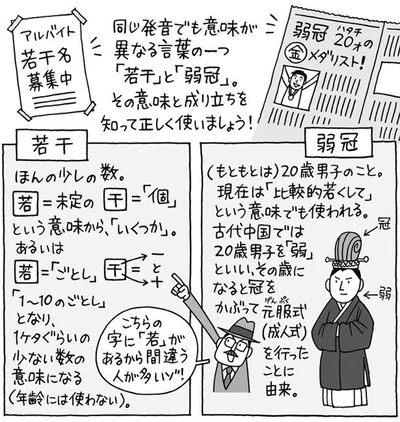 アルバイト
若干名
募集中
同じ発音でも意味が
異なる言葉の一つ
「若干」と「弱冠」。
その意味と成り立ちを
知って正しく使いましょう!
弱冠 20才の
ハタチ
金メダリスト!
若干
ほんの少しの数。
若=未定の 干=「個」
という意味から、「いくつか」。
あるいは
若=「ごとし」 干=一+十
「1〜10のごとし」
となり、
1ケタぐらいの
少ない数の
意味になる
(年齢には使わない)。
こちらの
字に「若」が
あるから間違う
人が多いゾ!
弱冠
(もともとは)20歳男子のこと。
現在は「比較的若くして」
という意味でも使われる。
古代中国では
20歳男子を「弱」
といい、その歳に
なると冠を
かぶって元服式
げんぷく
(成人式)
を行った
ことに
由来。
冠
弱